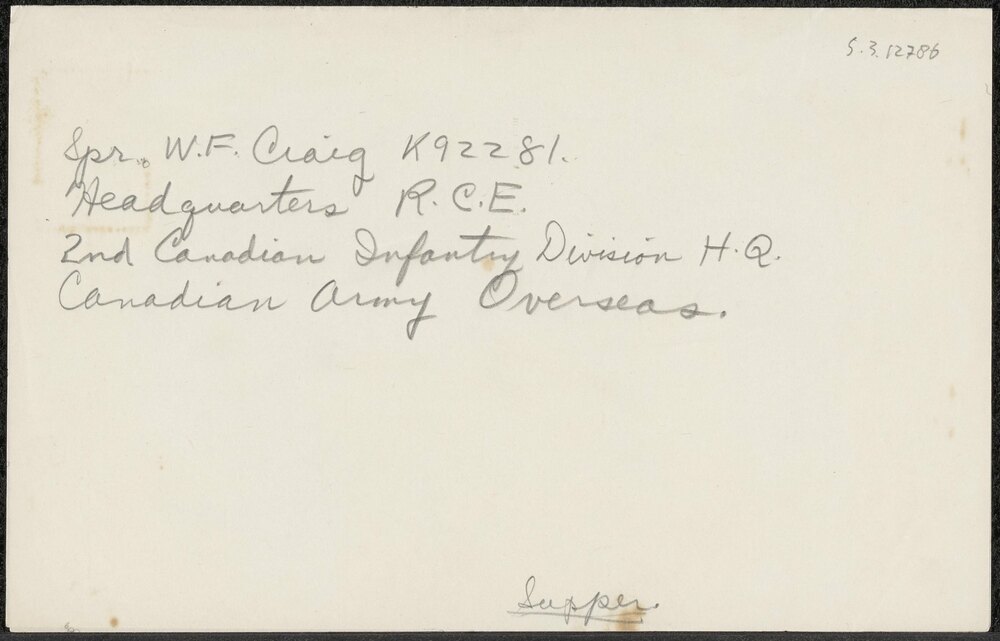 S.3.12786
Spr. W.F. Craig K92281.
Headquarters R.C.E.
2nd Canadian Infantry Division H.Q.
Canadian Army Overseas.
Sapper.